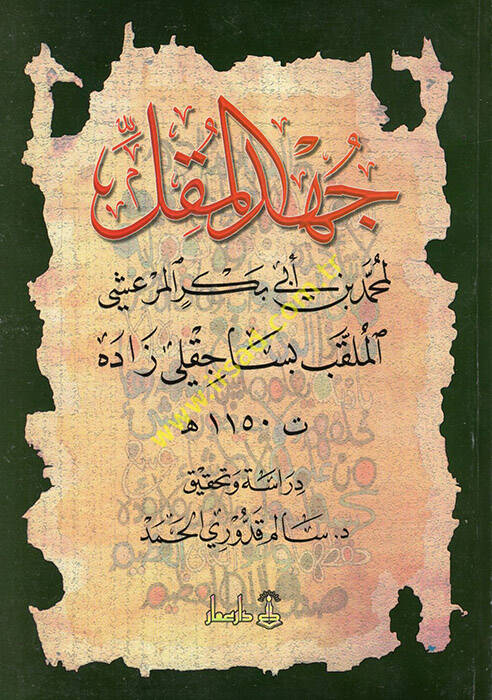 جُهْدُ المُقِلِّ
لمحمّد بن أبي بكر المرعشي
الملقّب بساجقلي زاده
ت ١١٥٠ هـ
دراسة وتحقيق
د. سالم قدّوري الحمد
دار عمار